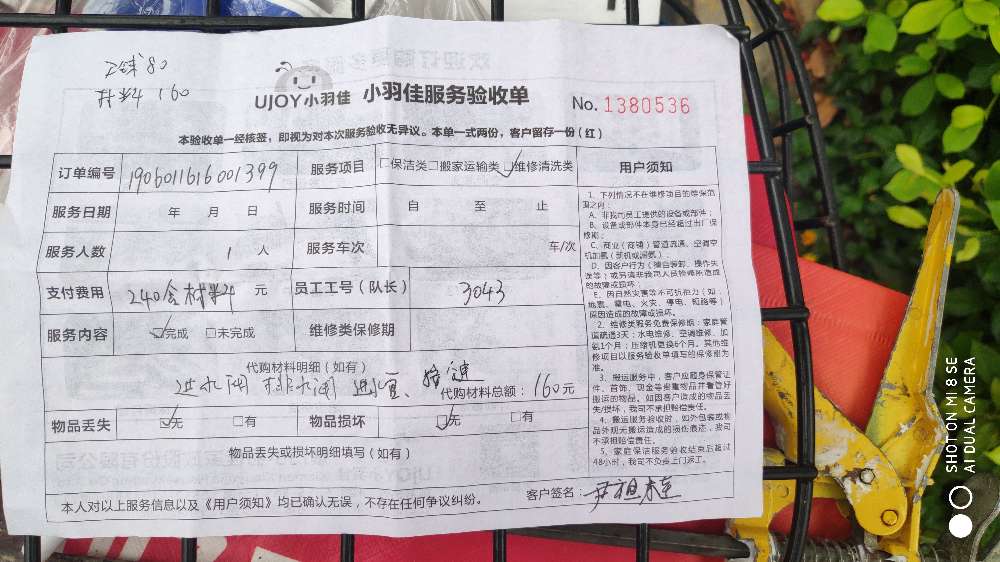 工钱80
材料 160
UJOY小羽佳 小羽佳服务验收单 No. 1380536
本验收单一经核签，即视为对本次服务验收无异议。本单一式两份，客户留存一份（红）
订单编号 1906011616001399 服务项目 □保洁类□搬家运输类☑维修清洗类
服务日期 年 月 日 服务时间 自 至 止
服务人数 1 人 服务车次 车/次
支付费用 240含材料 元 员工工号（队长） 3043
服务内容 ☑完成 □未完成 维修类保修期
代购材料明细（如有）
进水阀 排水阀
代购材料总额：160元
物品丢失 ☑无 □有 物品损坏 ☑无 □有
物品丢失或损坏明细填写（如有）
本人对以上服务信息以及《用户须知》均已确认无误，不存在任何争议纠纷。 客户签名：
用户须知
1、下列情况不在维修项目的维保范
围之内：
A、非我司员工提供的设备或部件；
B、设备或部件本身已经超过出厂保
修期；
C、商业（商铺）管道疏通、空调空
机加氟（新机或漏氟）；
D、因客户行为（擅自装卸、操作失
误等）或另请非我司人员检修所造成
的故障或损坏；
E、因自然灾害等不可抗拒力（如：
地震、雷电、火灾、停电、短路等）
原因造成的故障或损坏。
2、维修类服务免费保修期：家庭管
道疏通3天；水电维修、空调维修、加
氨1个月；压缩机更换6个月。其他维
修项目以服务验收单填写的保修期为
准。
3、搬运服务中，客户应随身保管证
件、首饰、现金等贵重物品并看管好
搬运的物品。如因客户造成的物品丢
失/损坏，我司不承担赔偿责任。
4、搬运服务验收时，如外包装或物
品外观无搬运造成的损伤痕迹，我司
不承担赔偿责任。
5、家庭保洁服务验收结束后超过
48小时，我司不负责上门返工。
SHOT ON MI 8 SE
AI DUAL CAMERA